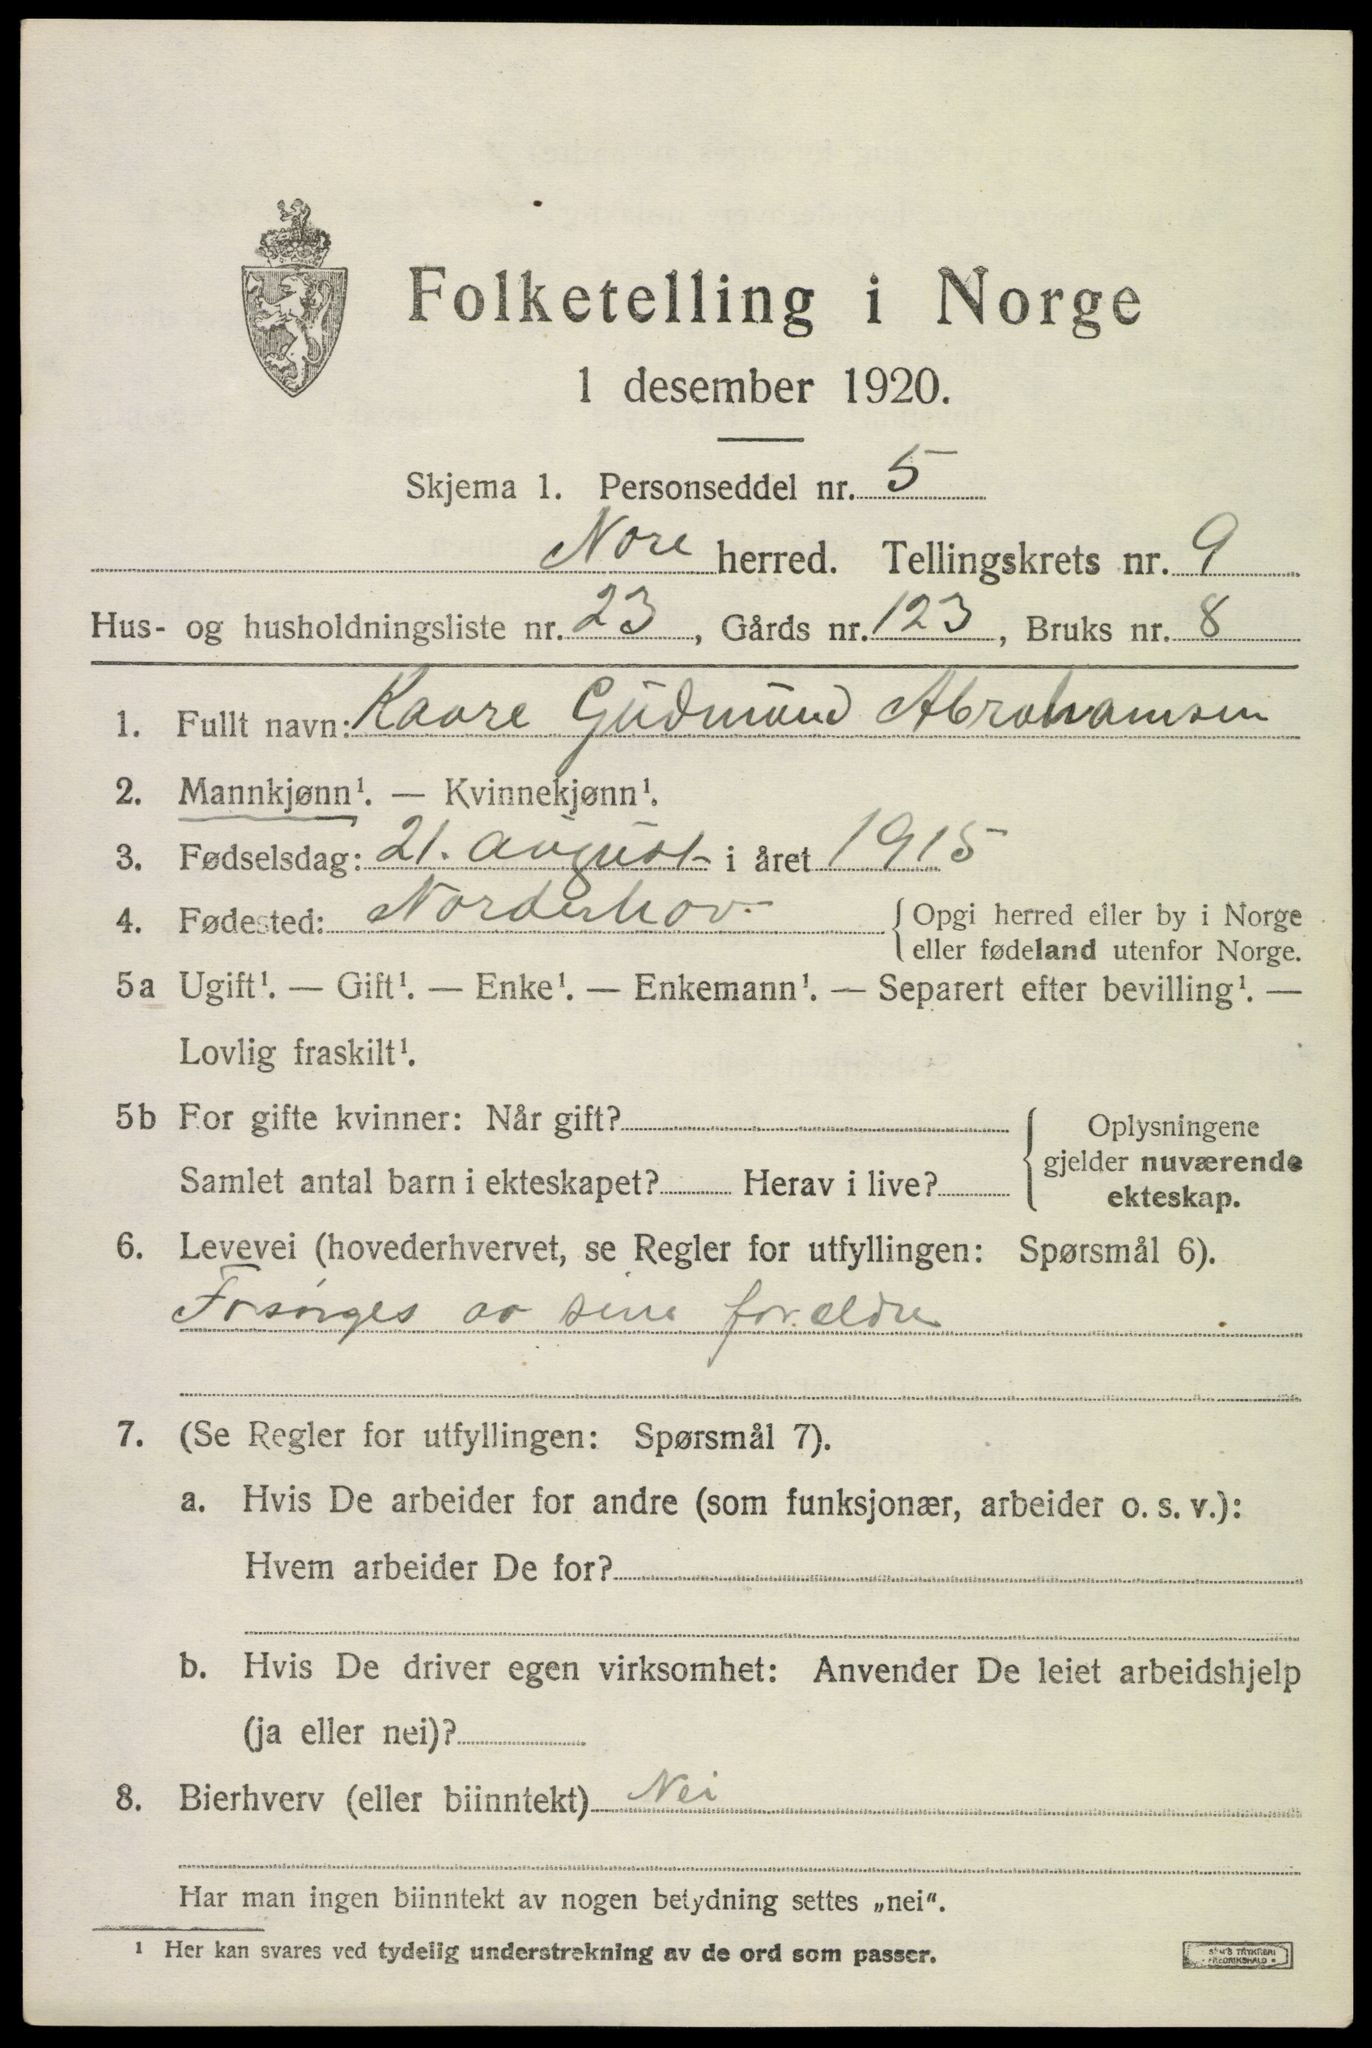 Folketelling i Norge
1 desember 1920.
Skjema 1. Personseddel nr. 5
Nore herred. Tellingskrets nr. 9
Hus- og husholdningsliste nr. 23, Gårds nr. 123, Bruks nr. 8
1. Fullt navn: Kaare Gudmund Abrahamsen
2. Mannkjønn¹. — Kvinnekjønn¹.
3. Fødselsdag: 21. august i året 1915
4. Fødested: Norderhov. { Opgi herred eller by i Norge
eller fødeland utenfor Norge.
5a Ugift¹. — Gift¹. — Enke¹. — Enkemann¹. — Separert efter bevilling¹. —
Lovlig fraskilt¹.
5b For gifte kvinner: Når gift? { Oplysningene
gjelder nuværende
Samlet antal barn i ekteskapet? Herav i live?
ekteskap.
6. Levevei (hovederhvervet, se Regler for utfyllingen: Spørsmål 6).
Forsørges av sine forældre
7. (Se Regler for utfyllingen: Spørsmål 7).
a. Hvis De arbeider for andre (som funksjonær, arbeider o. s. v.):
Hvem arbeider De for?
b. Hvis De driver egen virksomhet: Anvender De leiet arbeidshjelp
(ja eller nei)?
8. Bierhverv (eller biinntekt) Nei
Har man ingen biinntekt av nogen betydning settes „nei".
¹ Her kan svares ved tydelig understrekning av de ord som passer.
TRYKKERI
FREDRIKSHALD